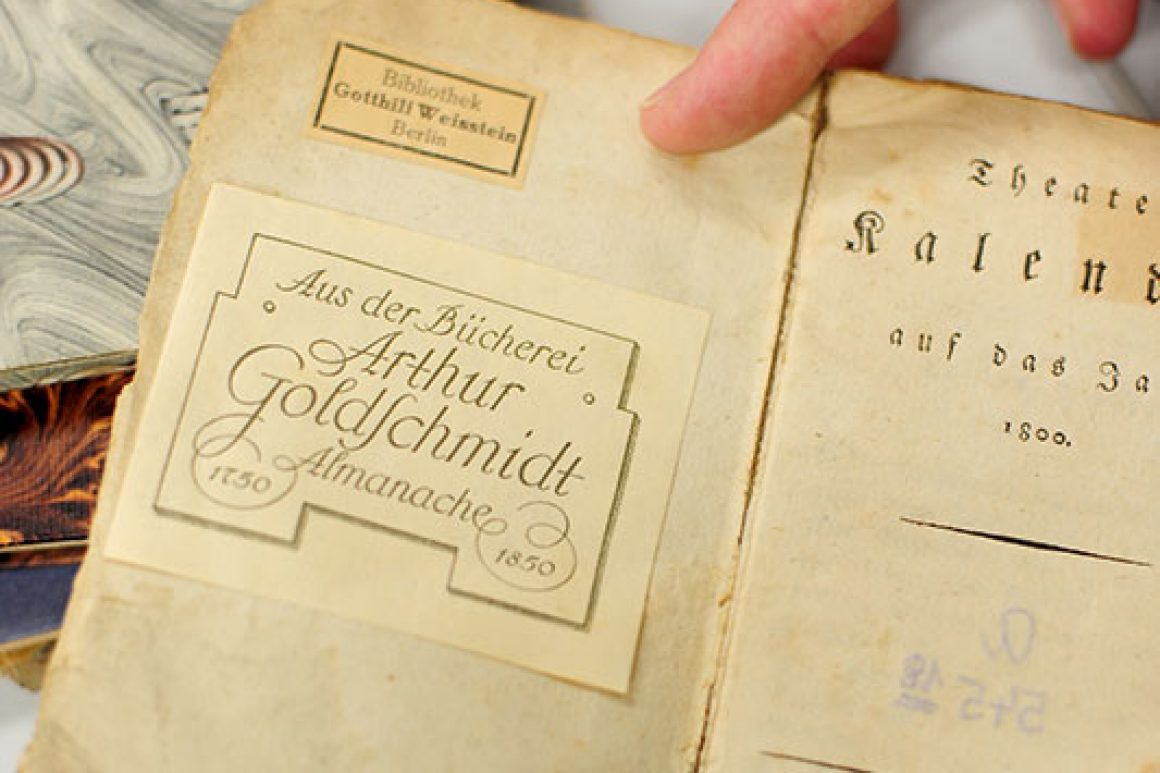 Bibliothek
Gotthilf Weisstein
Berlin
Aus der Bücherei
Arthur
Goldſchmidt
Almanache
1750
1850
Theate
Kalend
auf das Ja
1800.
545 18